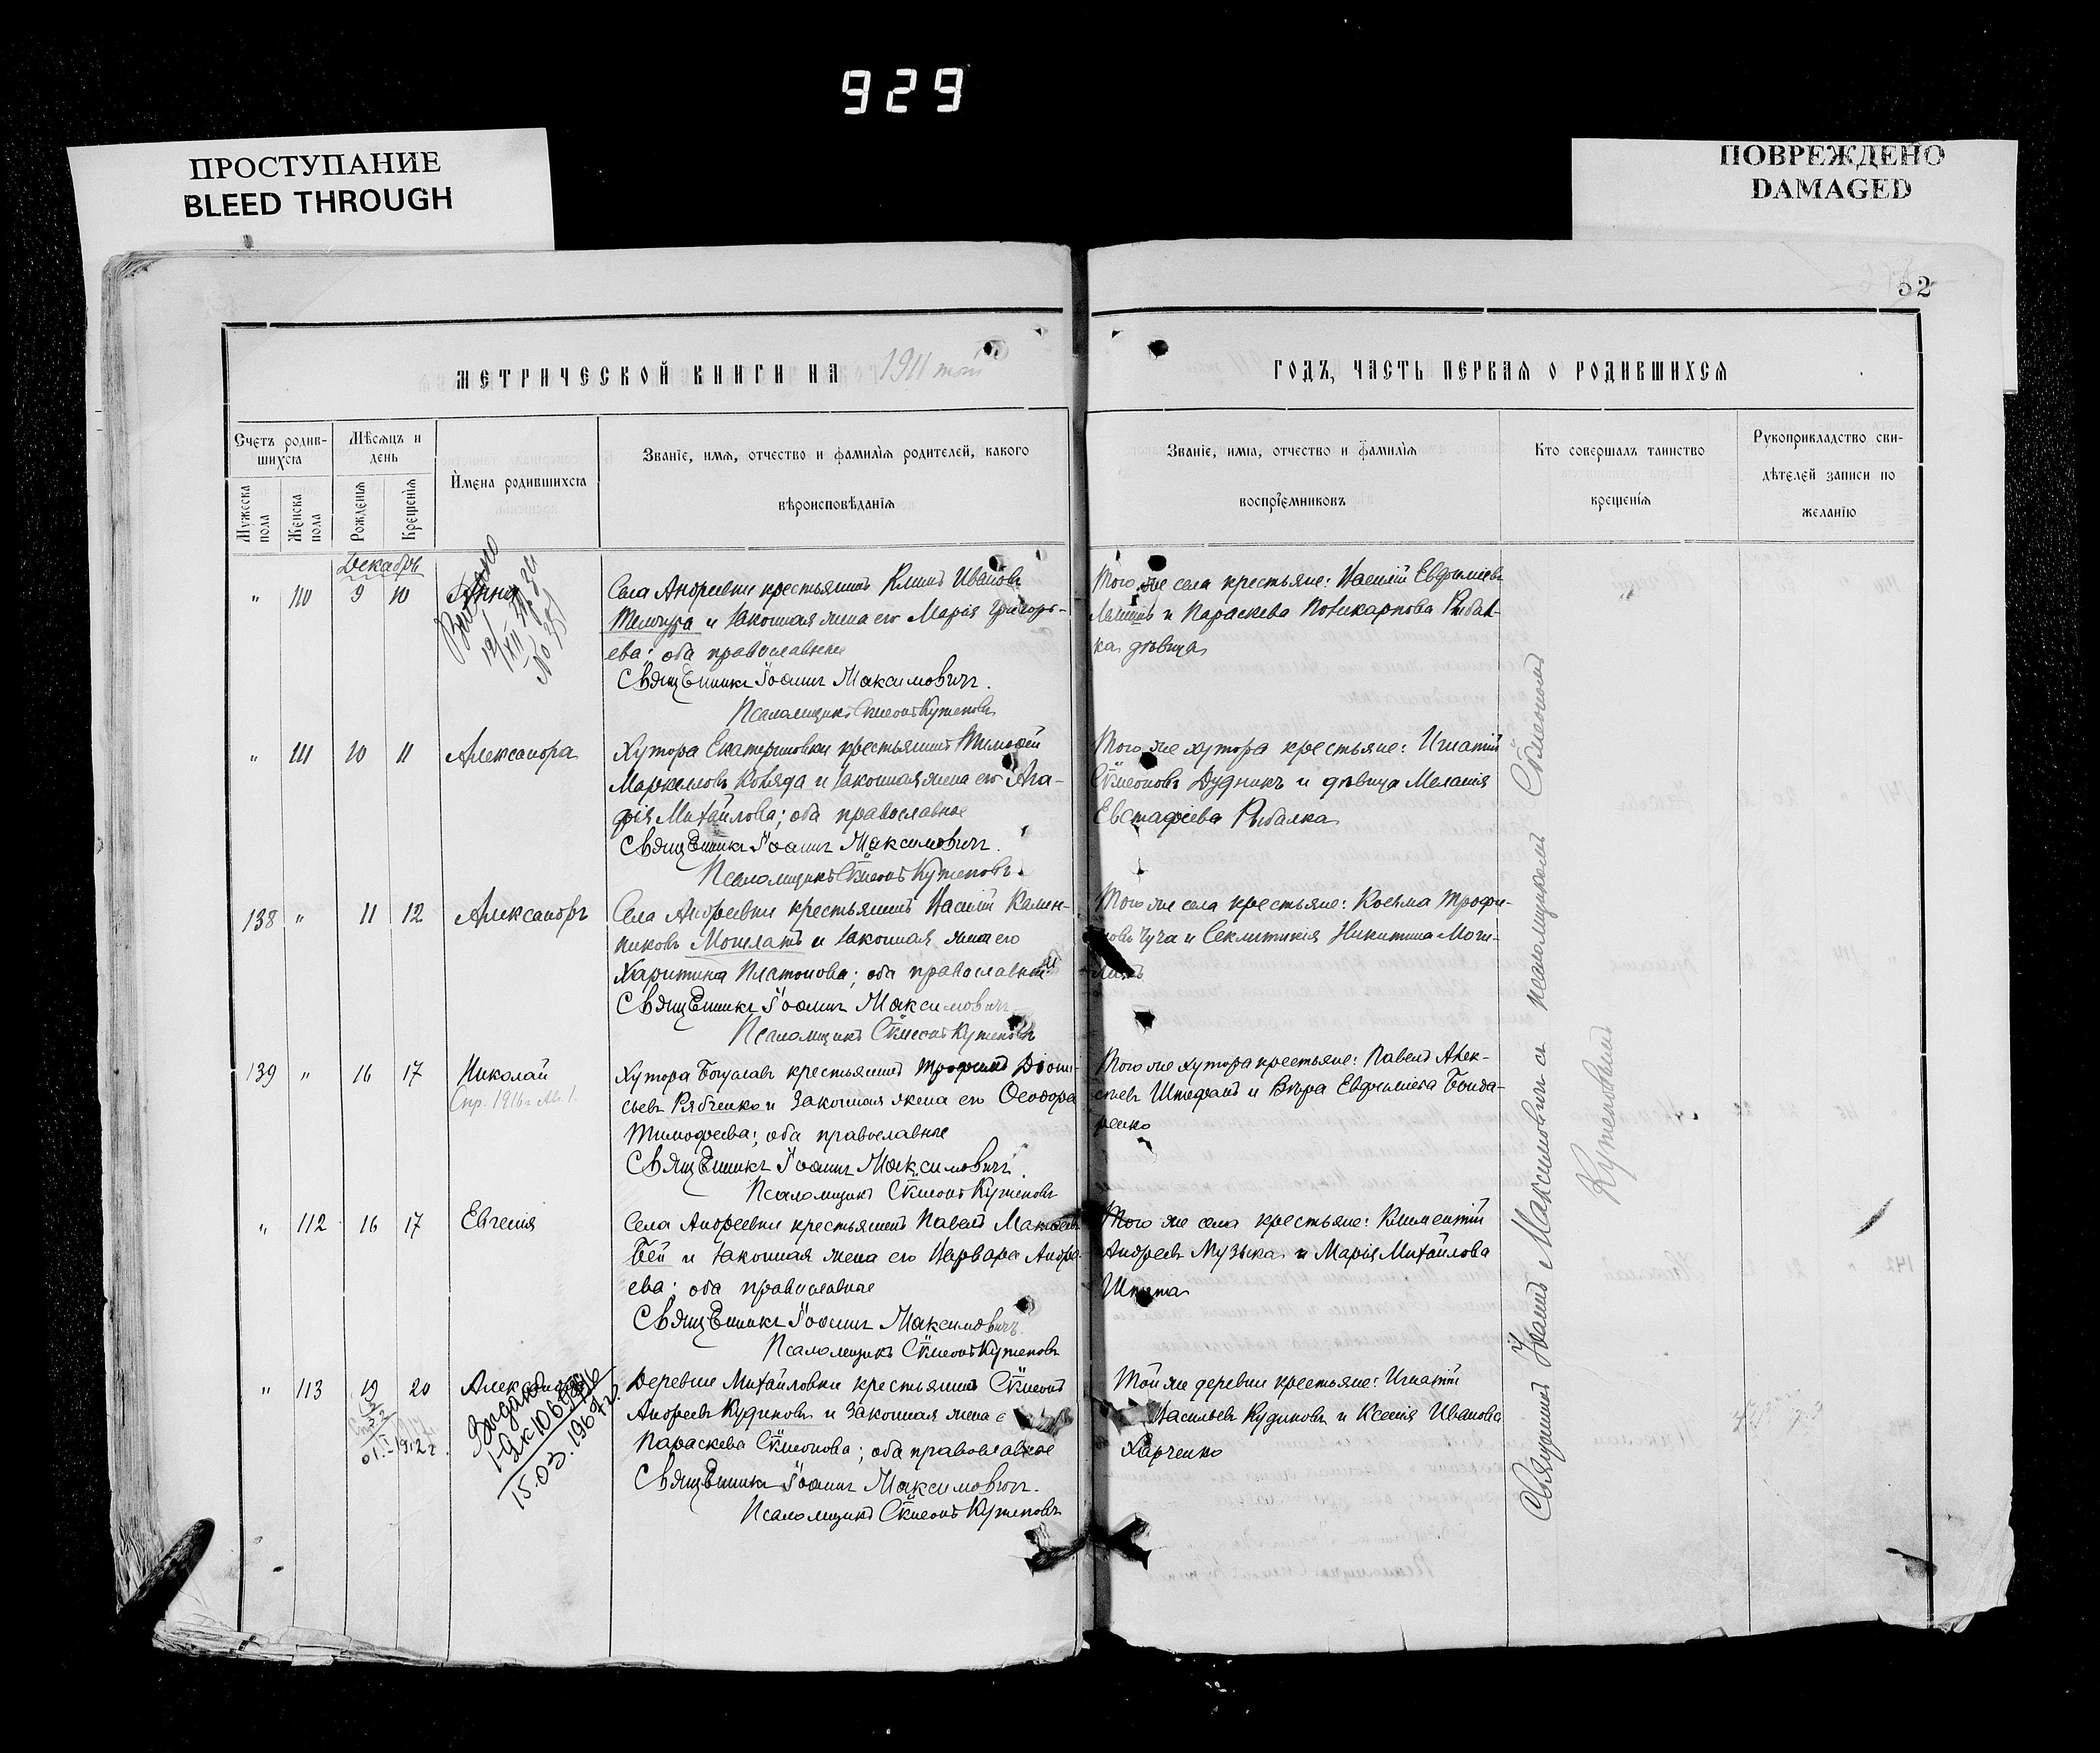 929
ПРОСТУПАНИЕ
BLEED THROUGH
ПОВРЕЖДЕНО
DAMAGED
52
МЕТРИЧЕСКОЙ КНИГИ НА 1911 той
ГОДЪ, ЧАСТЬ ПЕРВАЯ О РОДИВШИХСЯ
Счетъ родив-
шихся
Мужеска пола
Женска пола
Мѣсяцъ и
день
Рожденія
Крещенія
Имена родившихся
Званіе, имя, отчество и фамилія родителей, какого
вѣроисповѣданія
Званіе, имя, отчество и фамилія
воспріемниковъ
Кто совершалъ таинство
крещенія
Рукоприкладство сви-
дѣтелей записи по
желанію
Декабрь
" 110 9 10 Анна
Села Андреевки крестьянинъ Климъ Ивановъ
и законная жена его Марія Григорь-
ева; оба православные
Священникъ Іоаннъ Максимовичъ.
Псаломщикъ Сѵмеонъ Кутеповъ
Того же села крестьяне: Василій Евфиміевъ
и Параскева Поликарпова Рыбал-
ка дѣвица
" 111 10 11 Александра
Хутора Екатериновки крестьянинъ Тимоѳей
Маркелловъ Коляда и законная жена его Ага-
фія Михайлова; оба православные
Священникъ Іоаннъ Максимовичъ.
Псаломщикъ Сѵмеонъ Кутеповъ.
Того же хутора крестьяне: Игнатій
Сѵмеоновъ Дудникъ и дѣвица Меланія
Евстафіева Рыбалка
138 " 11 12 Александръ
Села Андреевки крестьянинъ Василій Калин-
никовъ и законная жена его
Харитина Платонова; оба православные
Священникъ Іоаннъ Максимовичъ
Псаломщикъ Сѵмеонъ Кутеповъ
Того же села крестьяне: Косьма Трофи-
мовъ Чуча и Секлитикія Никитина Моги-
139 " 16 17 Николай
Спр. 1916 г.
Хутора Богуславъ крестьянинъ Трофимъ Діони-
сьевъ Рябченко и законная жена его Ѳеодора
Тимофеева; оба православные
Священникъ Іоаннъ Максимовичъ.
Псаломщикъ Сѵмеонъ Кутеповъ
Того же хутора крестьяне: Павелъ Алек-
сѣевъ Штефанъ и Вѣра Евфиміева Бонда-
ренко
" 112 16 17 Евгенія
Села Андреевки крестьянинъ Павелъ Матвѣевъ
Бей и законная жена его Варвара Андре-
ева; оба православные
Священникъ Іоаннъ Максимовичъ.
Псаломщикъ Сѵмеонъ Кутеповъ
Того же села крестьяне: Климентій
Андреевъ Музыка и Марія Михайлова
" 113 19 20
01.I.1912 г.
15.03.1967 г.
Деревни Михайловки крестьянинъ Сѵмеонъ
Андреевъ Кудиновъ и законная жена
Параскева Сѵмеонова; оба православные
Священникъ Іоаннъ Максимовичъ.
Псаломщикъ Сѵмеонъ Кутеповъ
Той же деревни крестьяне: Игнатій
Васильевъ Кудиновъ и Ксенія Иванова
Харченко
Священникъ Іоаннъ Максимовичъ съ псаломщикомъ Сѵмеономъ
Кутеповымъ